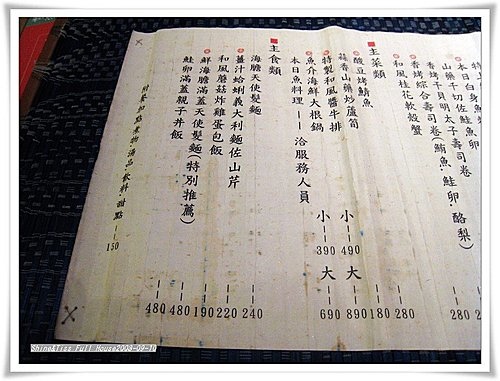 香烤干貝明太子壽司卷
香烤綜合壽司卷(鮪魚.鮭卵.酪梨) 280
和風桂花軟殼蟹
主菜類
酸豆烤鯖魚 280
蒜香山藥炒蘆筍 180
特製和風醬牛排 小490 大890
魚介海鮮大根鍋 小390 大690
本日魚料理 -- 洽服務人員
主食類
海膽天使髮麵 240
薑汁蛤蜊義大利麵佐山芹 220
和風蘑菇炸雞蛋包飯 190
鮮海膽滿蓋天使髮麵(特別推薦) 480
鮭卵滿蓋親子丼飯 480
附餐 湯品.飲料.甜點 -- 150